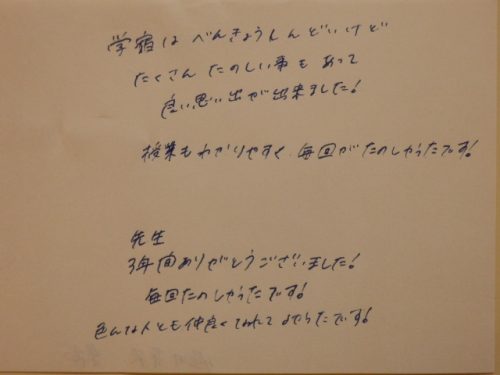 学宿は べんきょうしんどいけど
たくさん たのしい事も あって
良い思い出が出来ました!
授業もわかりやすく、毎回がたのしかったです!
先生
3年間ありがとうございました!
毎回たのしかったです!
色んな人とも仲良くなれて よかったです!